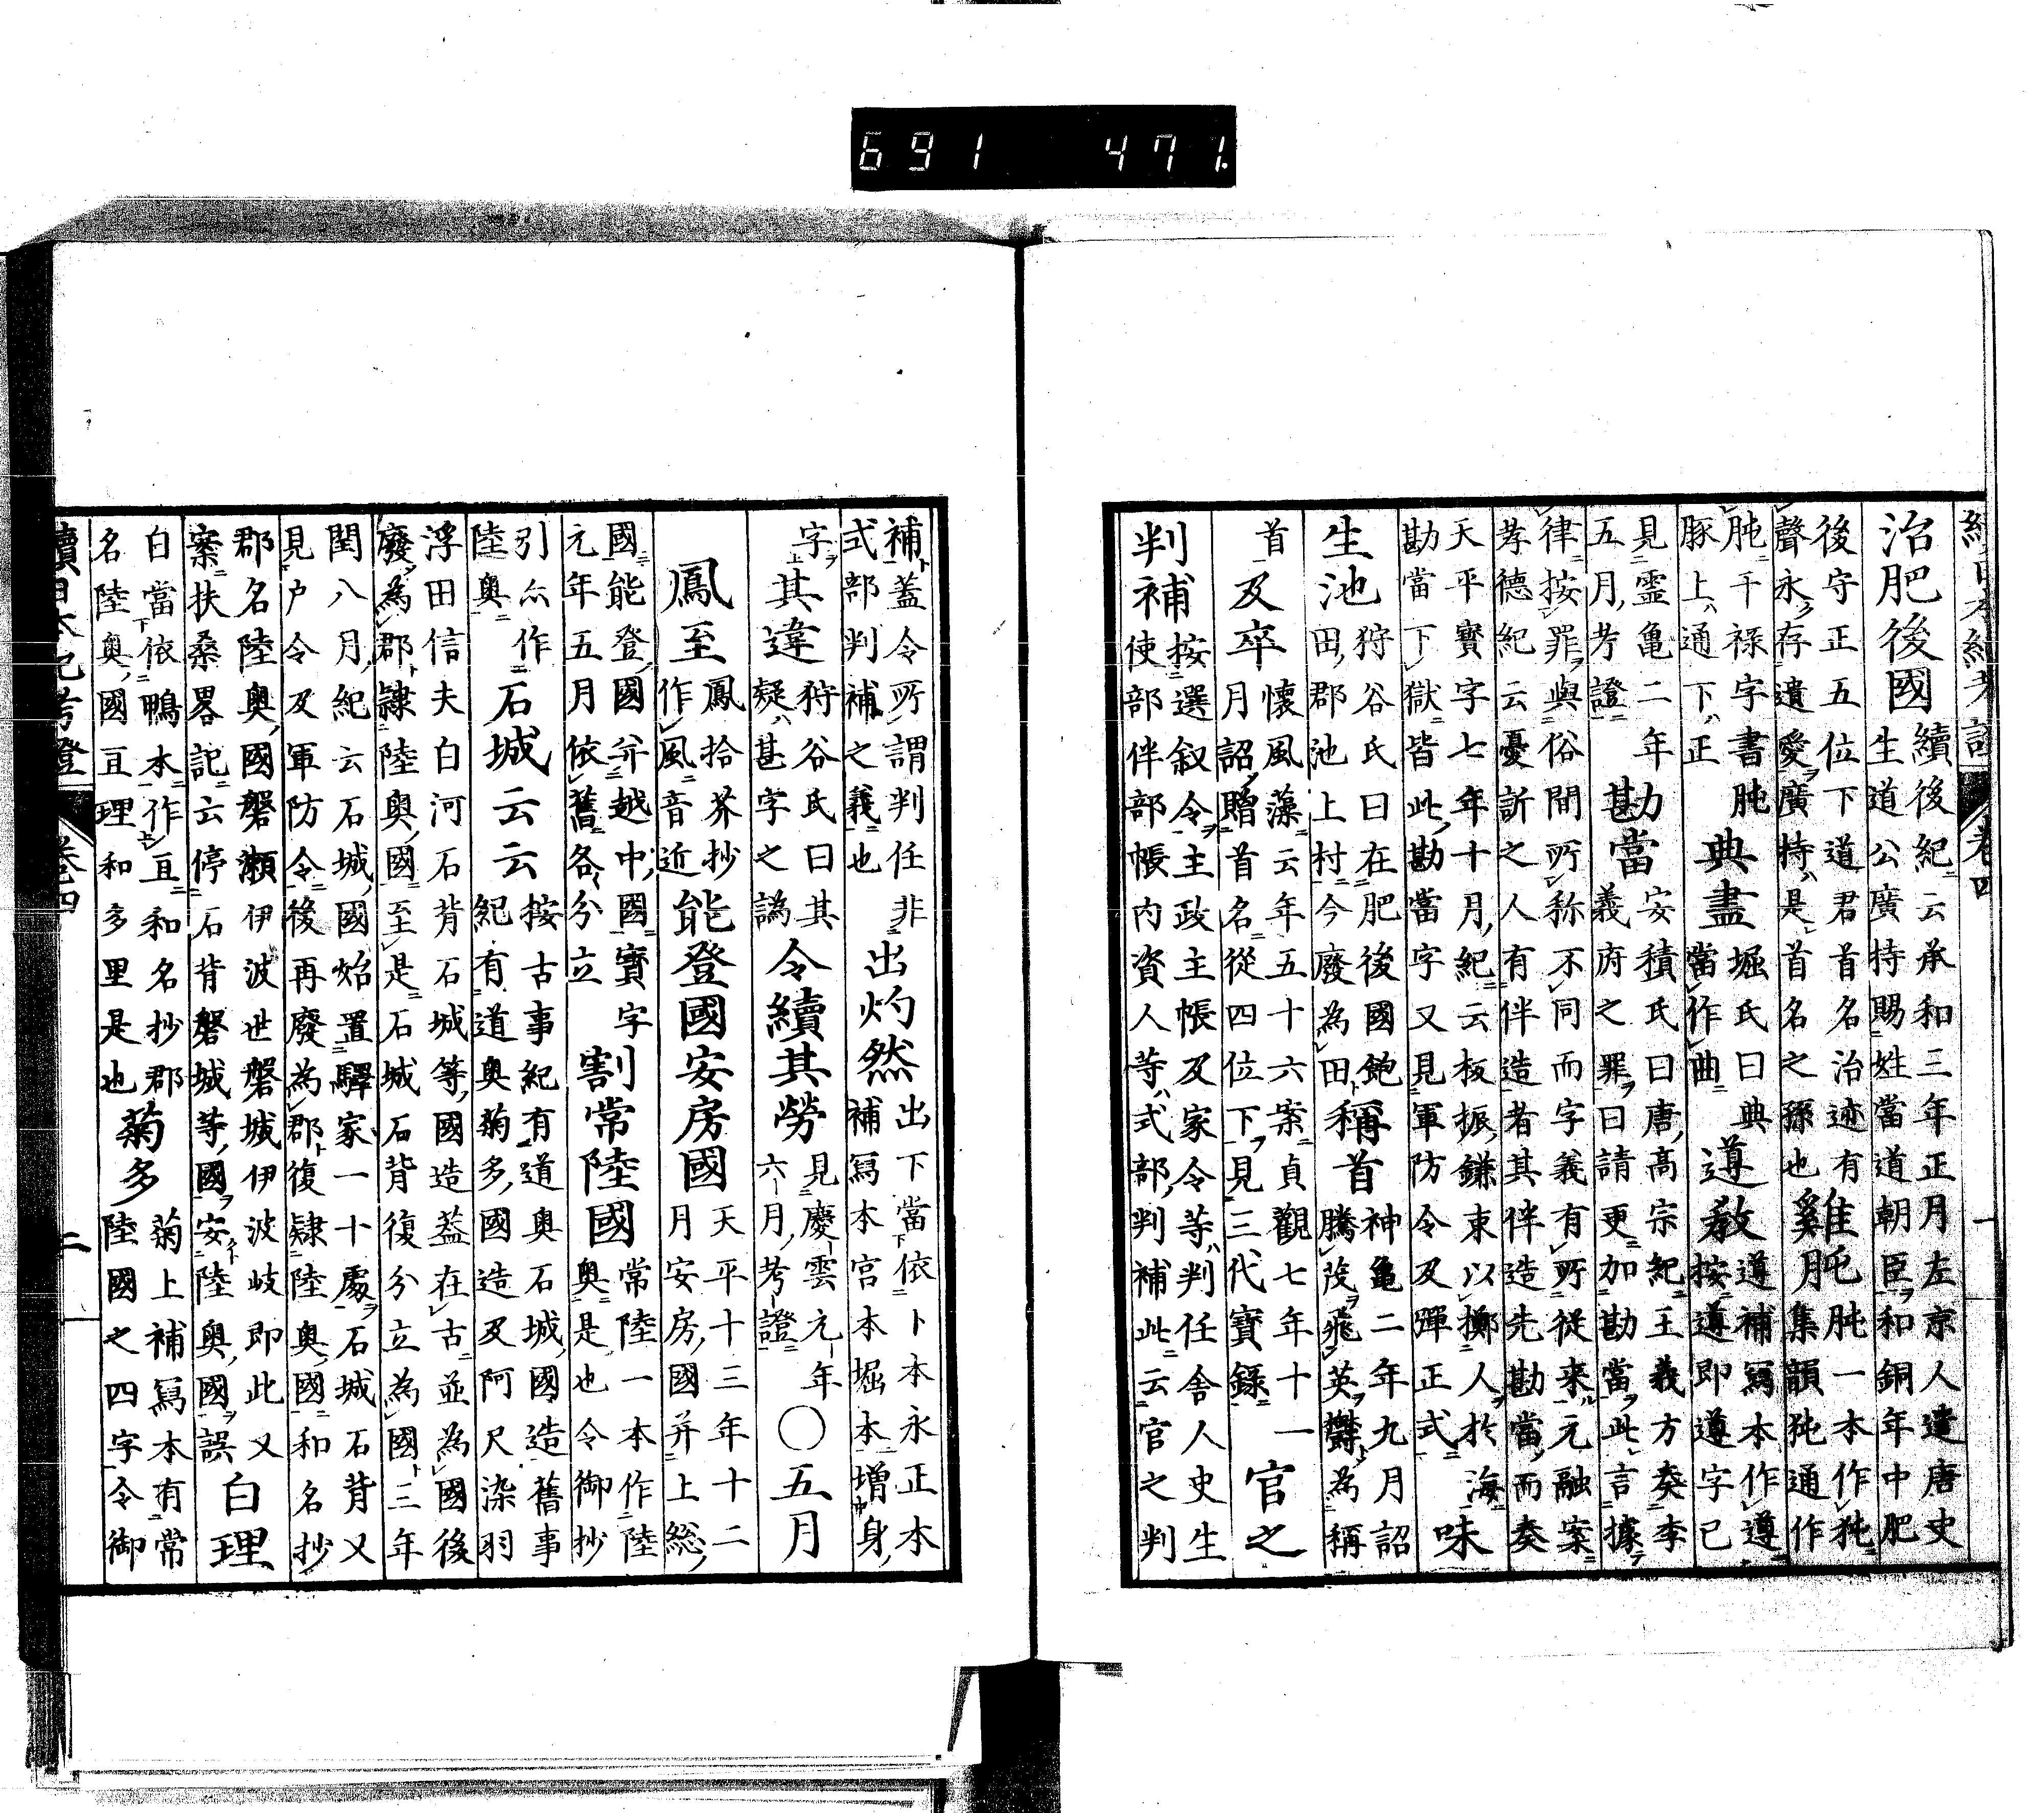 691 471.
續日本紀考證 卷四 一
治肥後國 續後紀云承和三年正月左京人遣唐史
生道公廣持賜姓當道朝臣和銅年中肥
後守正五位下道君首名治迹有
聲永存遺愛廣持是首名之孫也 雞肫 肫一本作㹠
月集韻㹠通作
肫干祿字書肫
豚上通下正 典盡 堀氏曰典
當作曲 遵敎 遵補寫本作遵
按遵即遵字已
見靈亀二年
五月考證 勘當 安積氏曰唐高宗紀王義方奏李
義府之罪曰請更加勘當此言據
律按罪與俗間所称不同而字義有所從来元融案
孝德紀云憂訴之人有伴造者其伴造先勘當而奏
天平寶字七年十月紀云板振鎌束以擲人於海
勘當下獄皆此勘當字又見軍防令及彈正式 味
生池 狩谷氏曰在肥後國飽
田郡池上村今廢為田 稱首 神亀二年九月詔
騰茂飛英欝為稱
首 及卒 懷風藻云年五十六案貞觀七年十一
月詔贈首名從四位下見三代寶錄 官之
判補 按選叙令主政主帳及家令等判任舍人史生
使部伴部帳内資人等式部判補此云官之判
補蓋令所謂判任非
式部判補之義也 出灼然 出下當依卜本永正本
補寫本宮本堀本增身
字 其違 狩谷氏曰其
疑甚字之譌 令續其勞 見慶雲元年
六月考證 〇五月
鳳至 鳳拾芥抄
作風音近 能登國安房國 天平十三年十二
月安房國并上総
國能登國并越中國寶字
元年五月依舊各分立 割常陸國 常陸一本作陸
奥是也令御抄
引亦作
陸奥 石城云云 按古事紀有道奥石城國造舊事
紀有道奥菊多國造及阿尺染羽
浮田信夫白河石背石城等國造蓋在古並為國後
廢為郡隷陸奥國至是石城石背復分立為國三年
閏八月紀云石城國始置驛家一十處石城石背又
見户令及軍防令後再廢為郡復隷陸奥國和名抄
郡名陸奥國磐瀬伊波世磐城伊波岐即此又
案扶桑畧記云停石背磐城等國安陸奥國誤 白理
白當依鴨本作亘和名抄郡
名陸奥國亘理和多里是也 菊多 菊上補寫本有常
陸國之四字令御
續日本紀考證 卷四 二